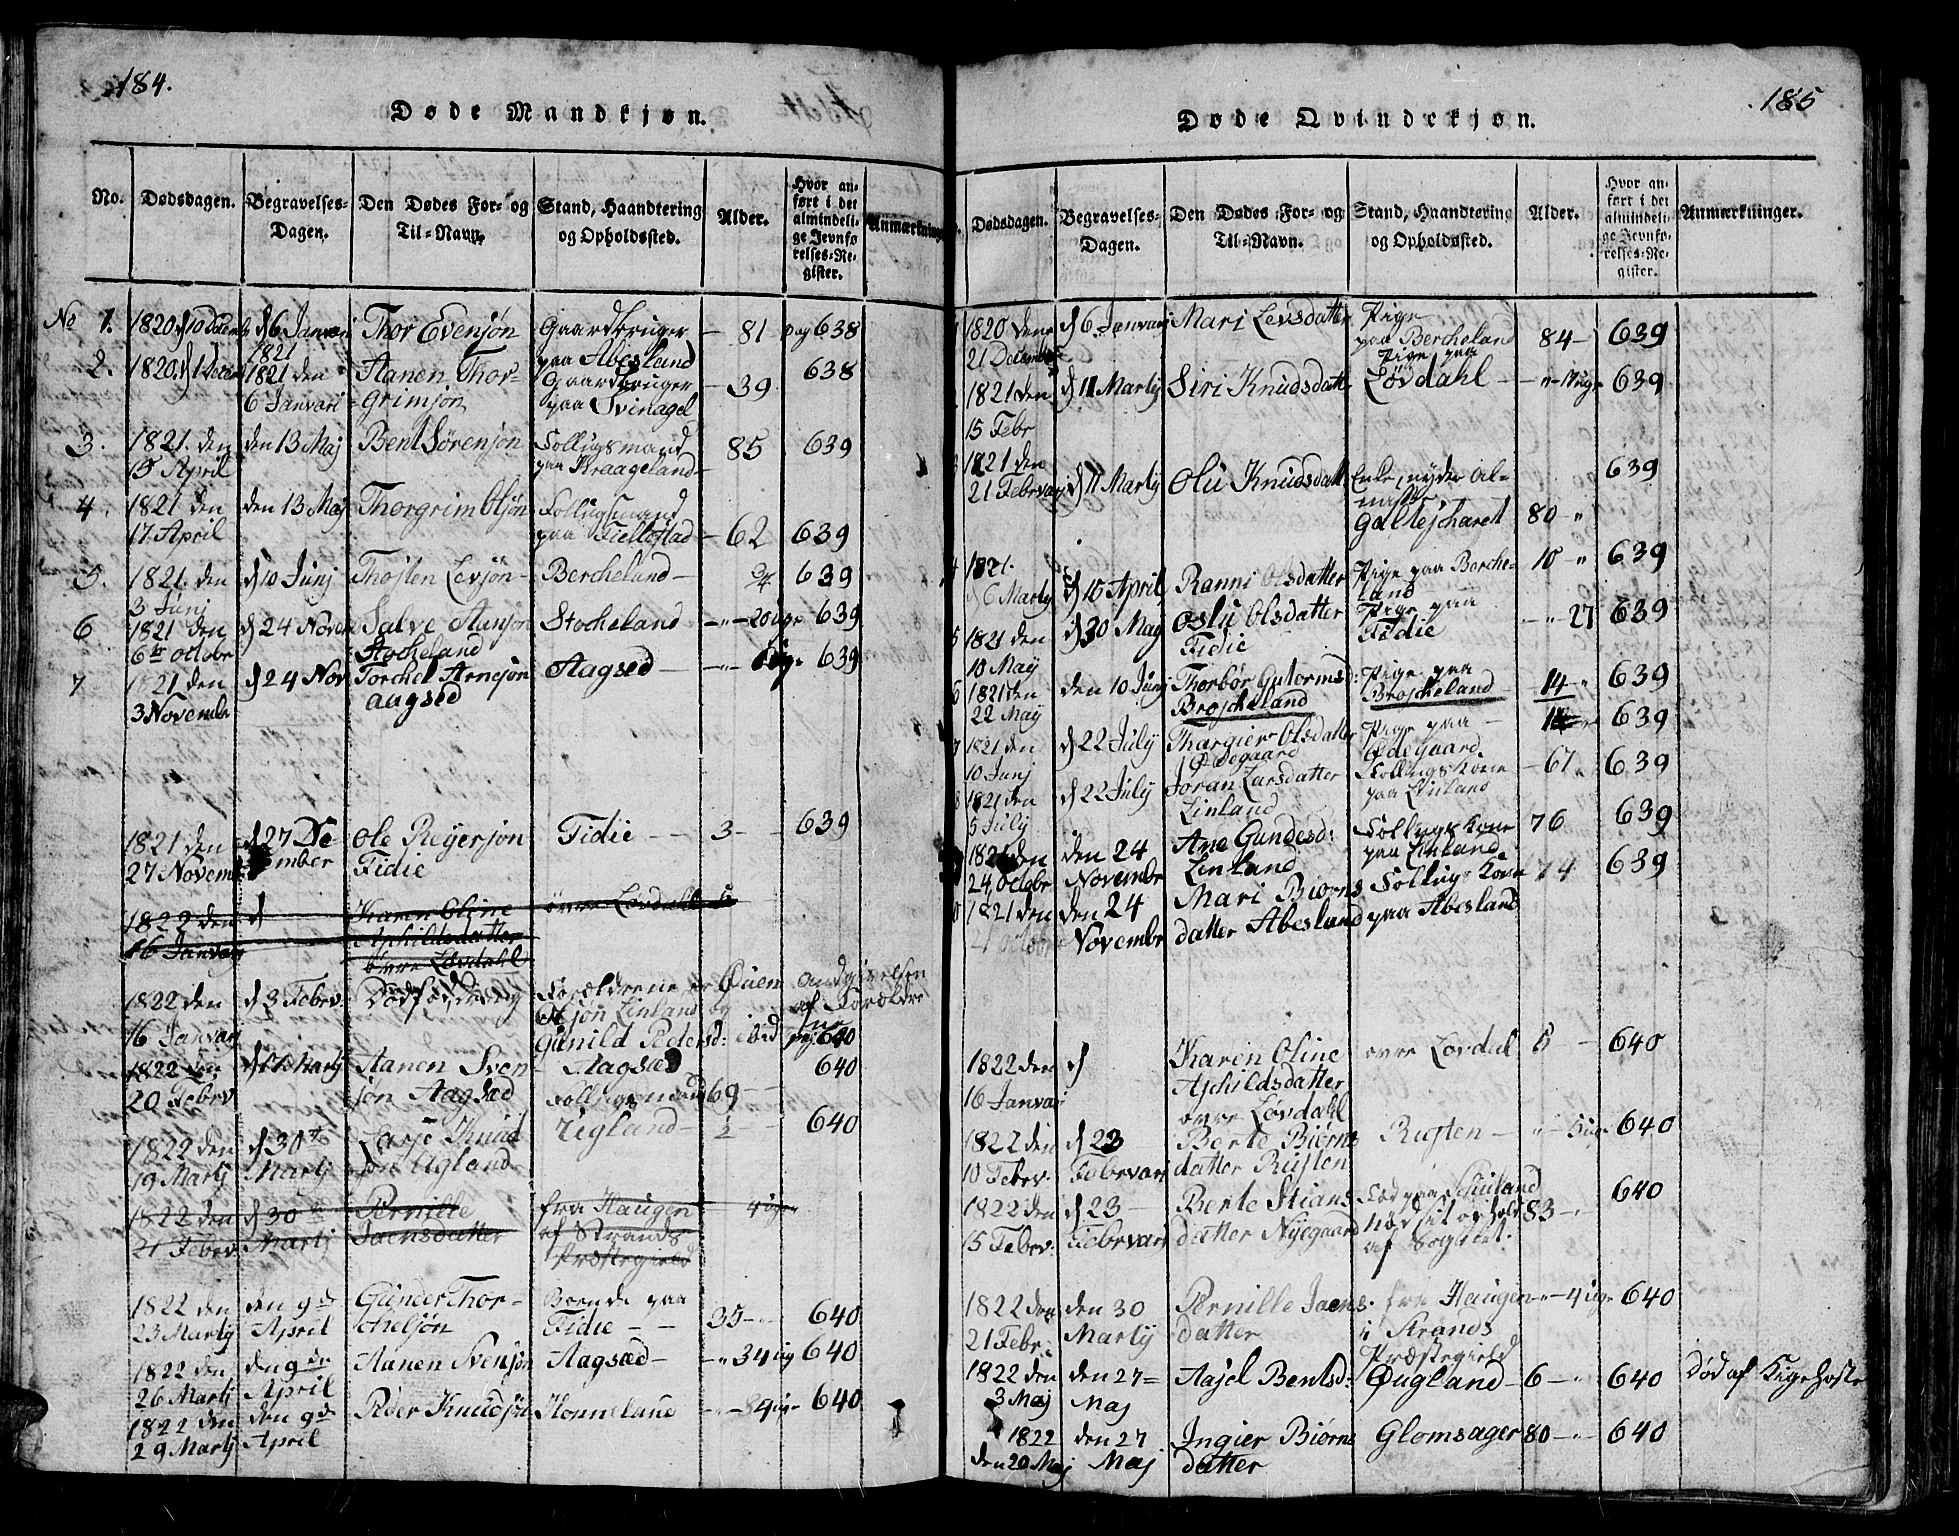 184.
Døde Mandkjøn.
No. Dødsdagen. Begravelses-Dagen. Den Dødes For- og Til-Navn. Stand, Haandtering og Opholdssted. Alder. Hvor anført i det almindelige Jevnførelses-Register. Anmærkninger
No 1. 1820 d 10 Decemb d 6 Januari 1821 Thor Evensøn Gaardbruger paa Abesland 81 pag 638
2. 1820 d 1 Decem 1821 den 6 Januari Aanen Thorgrimsøn Gaardbruger paa Svinagel 39 638
3. 1821 den 15 April den 13 Maj Bent Sørensøn Follugsmand paa Kraageland 85 639
4. 1821 den 17 April den 13 Maj Thorgrim Olsøn Follugsmand paa Fieltstad 62 639
5. 1821. den 3 Junj d 10 Junj Thosten Levsøn Bercheland 639
6 1821 den 6te Octobr d 24 Novem Salve Aansøn Stocheland Stocheland 20 uge 639
7 1821 den 3 Novembr d 24 Nov Torchel Arnesøn Aagsed Aagsed uge 639
1821 den 27 Novemb d 27 December Ole Reyersøn Fidie Fidie 3 639
1822 den 16 Januari d Karen Oline Aschildsdatter övre Løvdahl övre Løvdahl 5
1822 den 16 Januari d 3 Febrv: Dödföd dreng Forældrene er Øuen Linland og Gunild Pedersd: ibid Andgivelsen af Forældrene pag: 640
1822 den 20 Febrv d Martj Aanen Svensøn Aagsæd Aagsæd Follugsmand 69 640
1822 den 19 Martj d 30te Martj Tarje Knudsøn Ugland Uigland ½ 640
1822 den 21 Febrv. d 30te Martj Pernille Jaensdatter fra Haugen af Strands Præstegield 4 uger
1822 den 23 Martj den 9de April Gunder Thorchelsøn Boende paa Fidie 35 640
1822 den 26 Martj den 9de April Aanen Svensøn Aagsæd 34 ug 640
1822 den 29 Martj den 9de April Peder Knudsøn Honneland 4 ug 640
185
Døde Qvindekjøn.
Dødsdagen. Begravelses-Dagen. Den Dødes For- og Til-Navn. Stand, Haandtering og Opholdssted. Alder. Hvor anført i det almindelige Jevnførelses-Register. Anmærkninger.
1820 den 21 December d 6. Januarj Mari Levsdatter Pige paa Bercheland 84 639
1821 den 15 Febr d 11 Martj Siri Knudsdatt Pige paa Løvdahl uge 639
1821 den 21 Febrvarj d 11 Martj Olu Knudsdatt Enke, nyder Almisse Galtescharet 80 639
4 1821. d 6 Martj d 15 April Ranni Olsdatter Pige paa Bercheland 10 639
5 1821 den 10 Maij d 30 Maj Oslu Olsdatter Fidie Pige paa Fidie 27 639
6 1821 den 22 Maij den 10 Junj Thorbør Gutormsd: Broscheland Pige paa Broscheland 14 639
7 1821 den 10 Junj d 22 Julij Thargier Olsdatter Ødegaard Pige paa Ødegaard 639
8 1821 den 5 Julij d 22 Julij Joran Larsdatter Linland Follugskone paa Linland 67 639
1821 den 24 Octobr den 24 Novembr Ane Gundesd: Linland Follugskone paa Linland 76 639
1821 den Octobr den 24 Novembr Mari Biørnsdatter Abesland Follugskone paa Abesland 74 639
1822 den 16 Januari d Karen Oline Aschildsdatter ovre Løvdahl ovre Løvdal 5 640
1822 den 10 Febrv. d 23 Febrvari Berte Biørnsdatter Rusten Rusten uge 640
1822 den 15 Febrv: d 23 Febrvari Berte Stiansdatter Nyegaard Föd paa havde sit ophold af Sognet. 83 640
1822 den 21 Febr: den 30 Martij Pernille Jaensdatter fra Haugen i Strands Præstegield 4 uge 640
1822 den 3 Maj den 27 Maj Aasel Bentsd: Øugland 6 640 Død af Kigehoste
1822 den 20 Maj den 27 Maj Ingier Biørnsdatter Glomsager 80 640